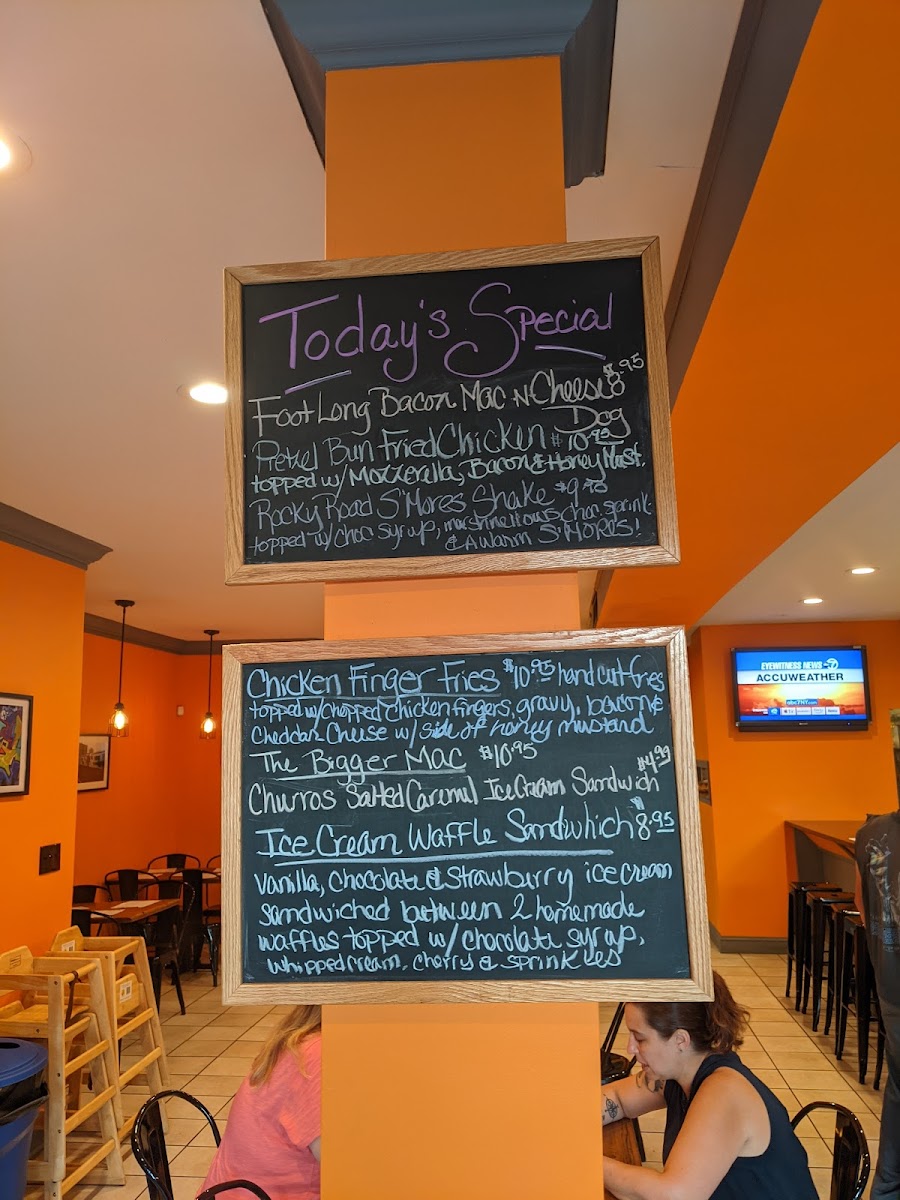 Today's Special
Foot Long Bacon Mac N Cheese $8.95
Dog
Pretzel Bun Fried Chicken $10.95
topped w/ Mozzerella, Bacon & Honey Must.
Rocky Road S'Mores Shake $9.95
topped w/ choc syrup, marshmellows, choc. sprink
& A Warm S'MORES!
Chicken Finger Fries $10.95 hand cut fries
topped w/ chopped chicken fingers, gravy, bacon &
Cheddar Cheese w/ side of honey mustard
The Bigger Mac $10.95
Churros Salted Caramel Ice Cream Sandwich $4.99
Ice Cream Waffle Sandwhich $8.95
Vanilla, Chocolate & Strawburry ice cream
sandwiched between 2 homemade
waffles topped w/ chocolate syrup,
whipped cream, cherry & sprinkles
EYEWITNESS NEWS 7
ACCUWEATHER
abc7NY.com